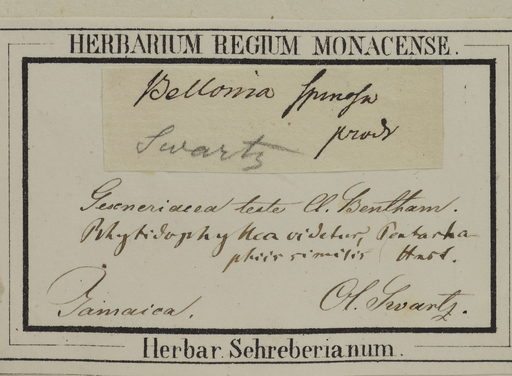 HERBARIUM REGIUM MONACENSE.
Bellonia spinosa
prodr
Swartz
Gesneriacea teste Cl. Bentham.
Rhytidophyllea videtur, Pentarha-
phiis similis Hnst.
Jamaica. Ol. Swartz.
Herbar. Schreberianum.